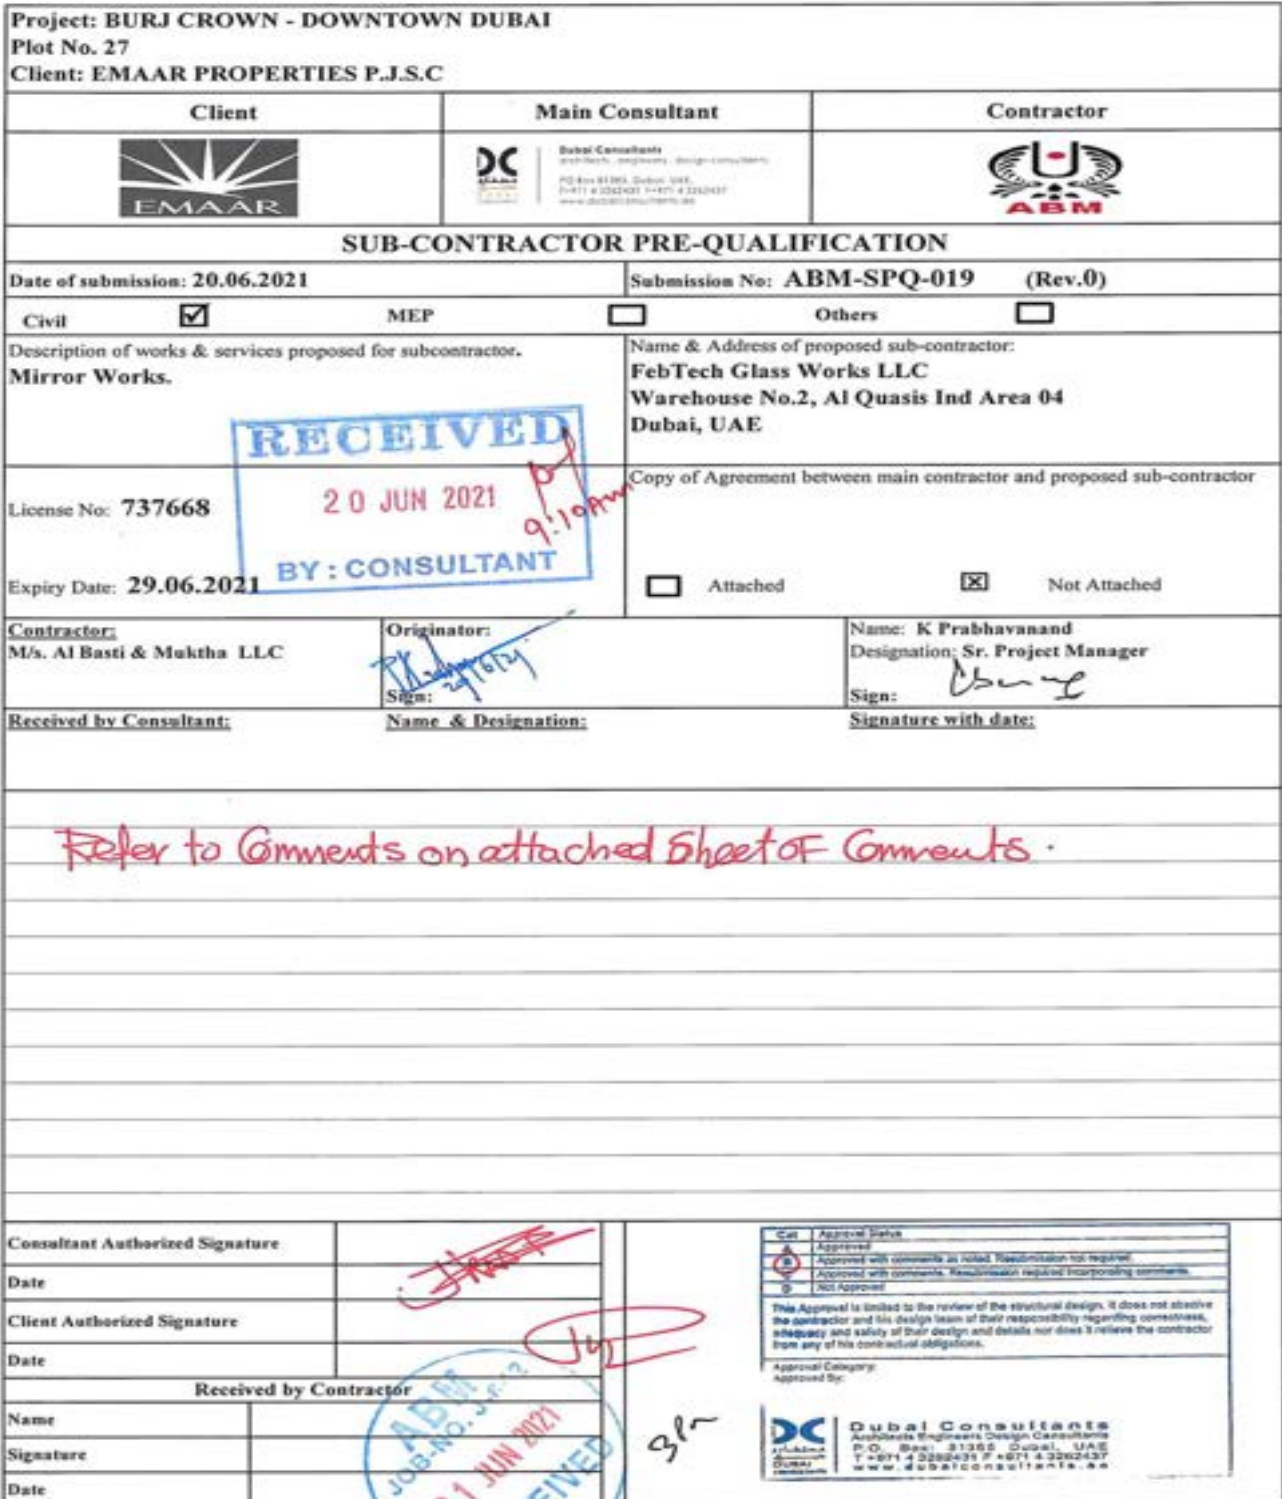 Project: BURJ CROWN - DOWNTOWN DUBAI
Plot No. 27
Client: EMAAR PROPERTIES P.J.S.C
Client Main Consultant Contractor
EMAAR
Dubai Consultants
architects . engineers . design consultants
ABM
SUB-CONTRACTOR PRE-QUALIFICATION
Date of submission: 20.06.2021
Submission No: ABM-SPQ-019 (Rev.0)
Civil MEP Others
Description of works & services proposed for subcontractor.
Mirror Works.
Name & Address of proposed sub-contractor:
FebTech Glass Works LLC
Warehouse No.2, Al Quasis Ind Area 04
Dubai, UAE
RECEIVED
20 JUN 2021
9:10AM
BY : CONSULTANT
License No: 737668
Expiry Date: 29.06.2021
Copy of Agreement between main contractor and proposed sub-contractor
Attached Not Attached
Contractor:
M/s. Al Basti & Muktha LLC
Originator:
20/6/21
Sign:
Name: K Prabhavanand
Designation: Sr. Project Manager
Sign:
Received by Consultant: Name & Designation: Signature with date:
Refer to Comments on attached Sheet OF Comments.
Consultant Authorized Signature
Date
Client Authorized Signature
Date
Received by Contractor
Name
Signature
Date
ABM
JOB-NO.
JUN 2021
Cat Approval Status
A Approved
B Approved with comments as noted. Resubmission not required.
C Approved with comments. Resubmission required incorporating comments.
D Not Approved
This Approval is limited to the review of the structural design. It does not absolve
the contractor and his design team of their responsibility regarding correctness,
adequacy and safety of their design and details nor does it relieve the contractor
from any of his contractual obligations.
Approval Category:
Approved By:
Dubai Consultants
Architects Engineers Design Consultants
P.O. Box: 31365 Dubai, UAE
T +971 4 3262431 F +971 4 3262437
www.dubaiconsultants.ae